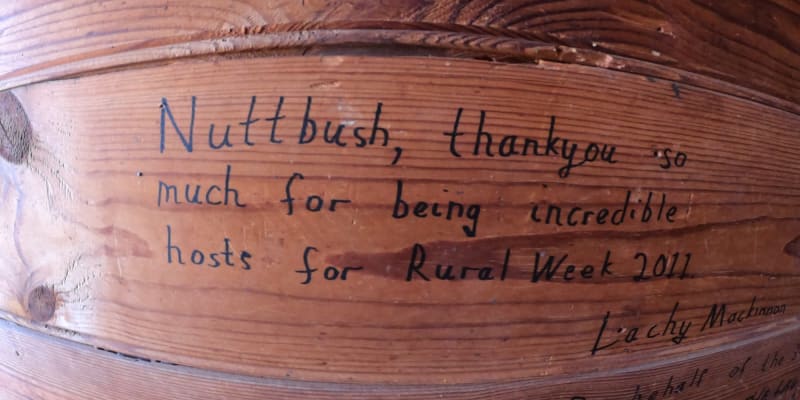 Nuttbush, thankyou so
much for being incredible
hosts for Rural Week 2011.
Lachy Mackinnon
behalf of the